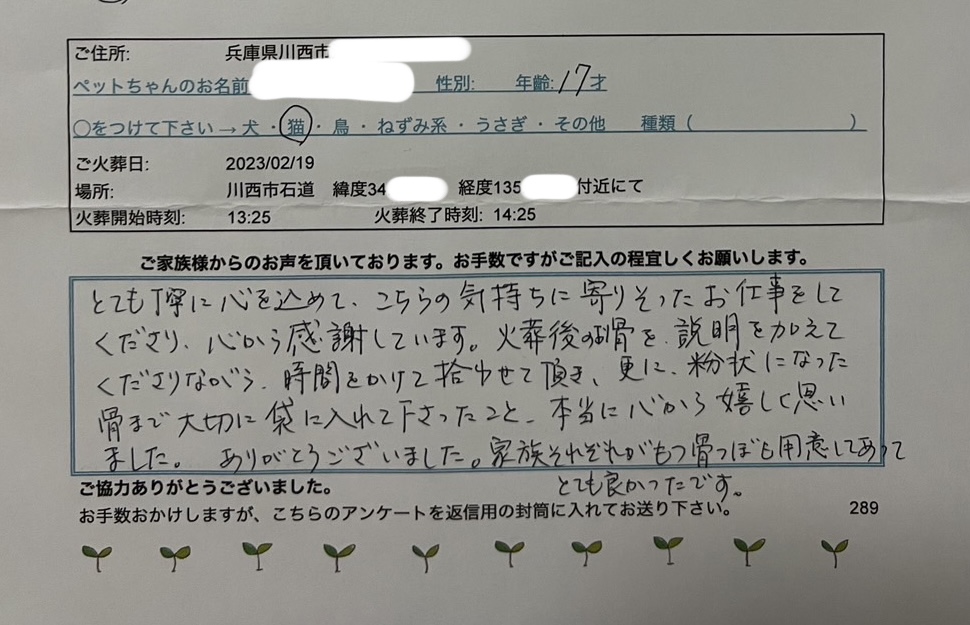 ご住所: 兵庫県川西市
ペットちゃんのお名前 性別: 年齢: 17才
○をつけて下さい→犬・猫・鳥・ねずみ系・うさぎ・その他 種類( )
ご火葬日: 2023/02/19
場所: 川西市石道 緯度34 経度135 付近にて
火葬開始時刻: 13:25 火葬終了時刻: 14:25
ご家族様からのお声を頂いております。お手数ですがご記入の程宜しくお願いします。
とても丁寧に心を込めて、こちらの気持ちに寄りそったお仕事をして
くださり、心から感謝しています。火葬後のお骨を、説明を加えて
くださりながら、時間をかけて拾わせて頂き、更に、粉状になった
骨まで大切に袋に入れて下さったこと、本当に心から嬉しく思い
ました。 ありがとうございました。家族それぞれがもつ骨つぼも用意してあって
とても良かったです。
ご協力ありがとうございました。
お手数おかけしますが、こちらのアンケートを返信用の封筒に入れてお送り下さい。 289